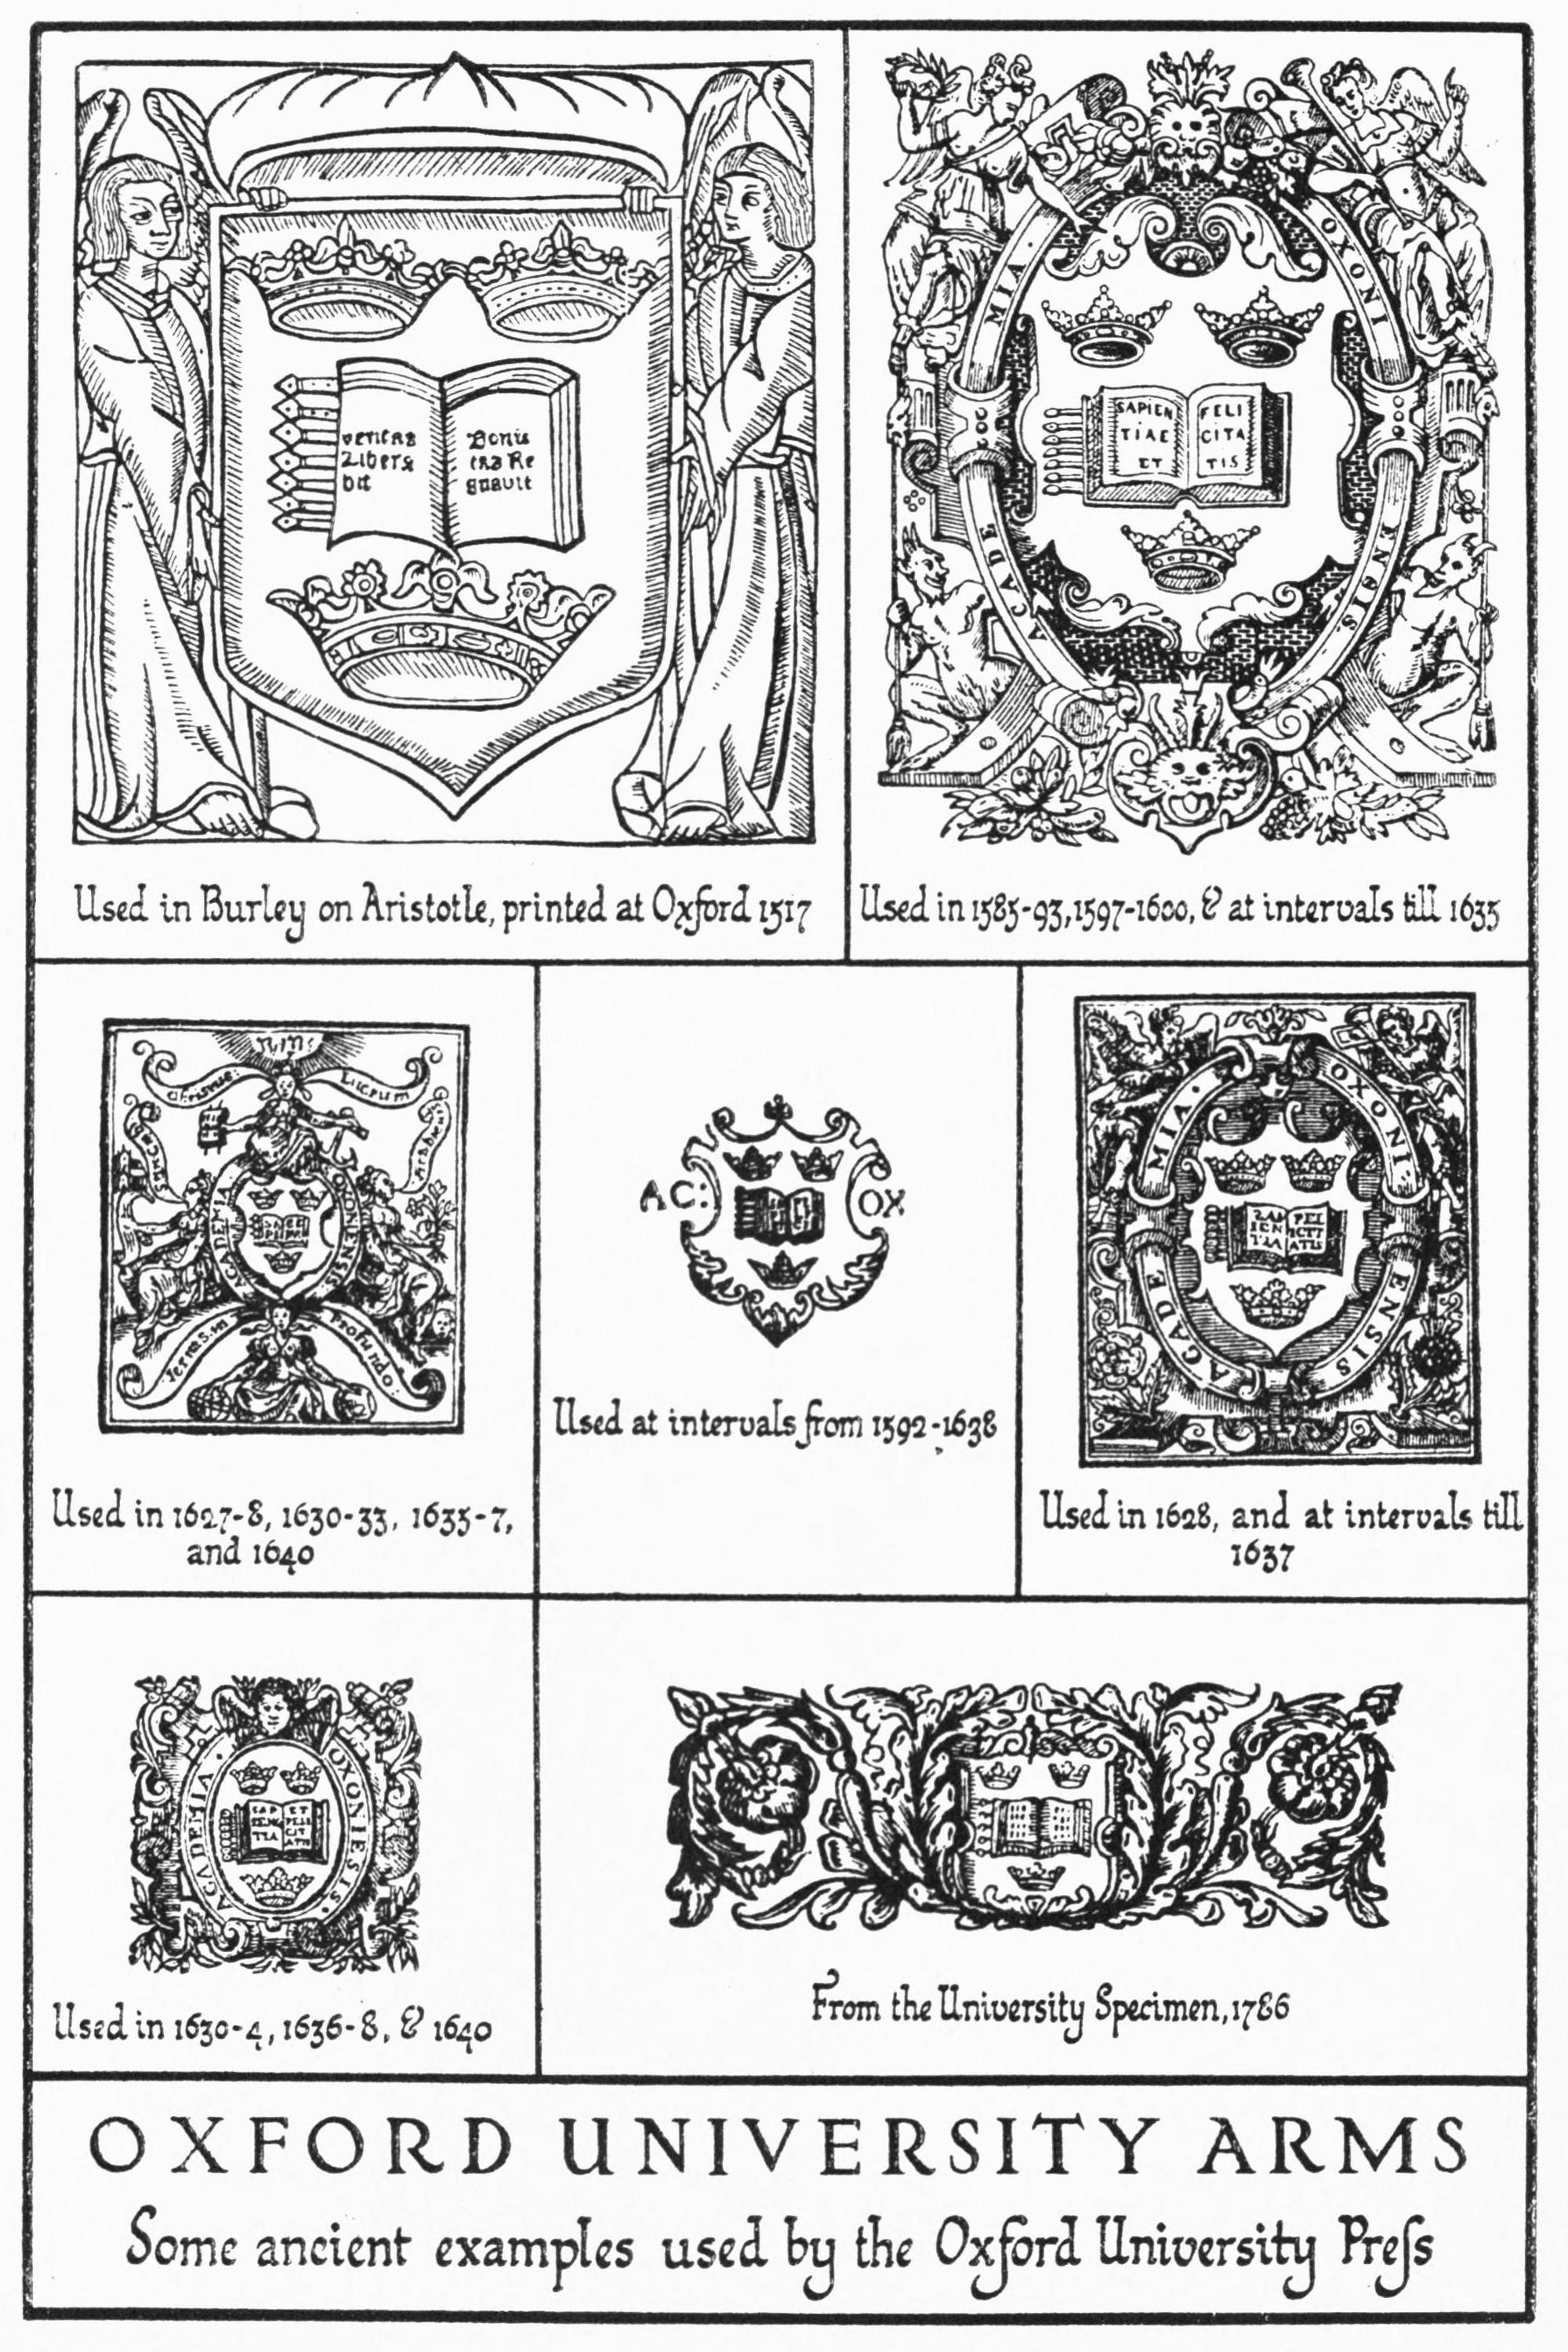 veritas
Libera
bit
Bonis
tas Re
gnauit
Used in Burley on Aristotle, printed at Oxford 1517
ACADE MIA · INOXO ENSIS
SAPIEN
TIAE
ET
FELI
CITA
TIS
Used in 1585-93, 1597-1600, & at intervals till 1635
ACADEMIA OXONIENSIS
Profundo
Used in 1627-8, 1630-33, 1635-7,
and 1640
AC: OX
Used at intervals from 1592-1638
ACADE MIA · OXONI ENSIS
SAP
IEN
TIA
FEL
ICIT
ATIS
Used in 1628, and at intervals till
1637
ACADEMIA · OXONIESIS
SAP
IENC
TIA
ET
FELI
CIT
ATIS
Used in 1630-4, 1636-8, & 1640
From the University Specimen, 1786
OXFORD UNIVERSITY ARMS
Some ancient examples used by the Oxford University Preſs